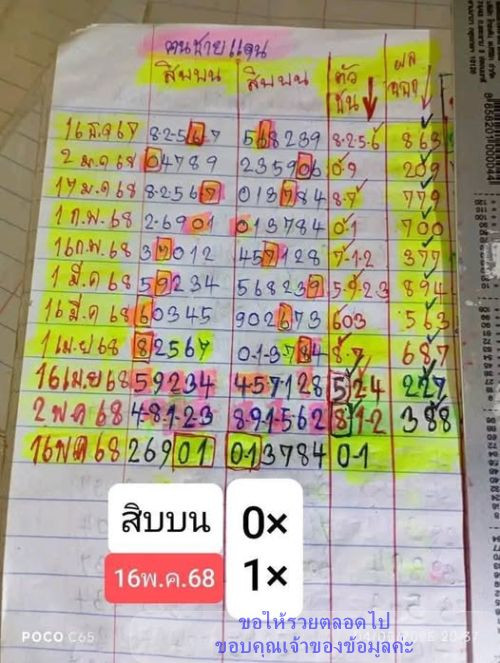 คนชายแดน
สิบบน สิบบน ตัว ผล
ชน ออก
16 ธ.ค 67 8-2-5-6-7 568239 8-2-5-6 863
2 ม.ค 68 04789 235906 0-9 209
17 ม.ค 68 8-2567 013784 8-7 779
1 ก.พ. 68 2-6901 013784 0-1 700
16 ก.พ. 68 37012 457128 7-1-2 377
1 มี.ค 68 59234 568239 5-9-2-3 894
16 มี.ค 68 60345 902673 603 563
1 เม.ย 68 82567 0-1-3784 8-7 687
16 เม.ย 68 59234 457-128 524 227
2 พ.ค 68 4-8-1-2-3 8-9-1-562 81-2 388
16 พ.ค 68 26901 0-13784 0-1
สิบบน 0×
16พ.ค.68 1×
ขอให้รวยตลอดไป
POCO C65
ขอบคุณเจ้าของข้อมูลค่ะ